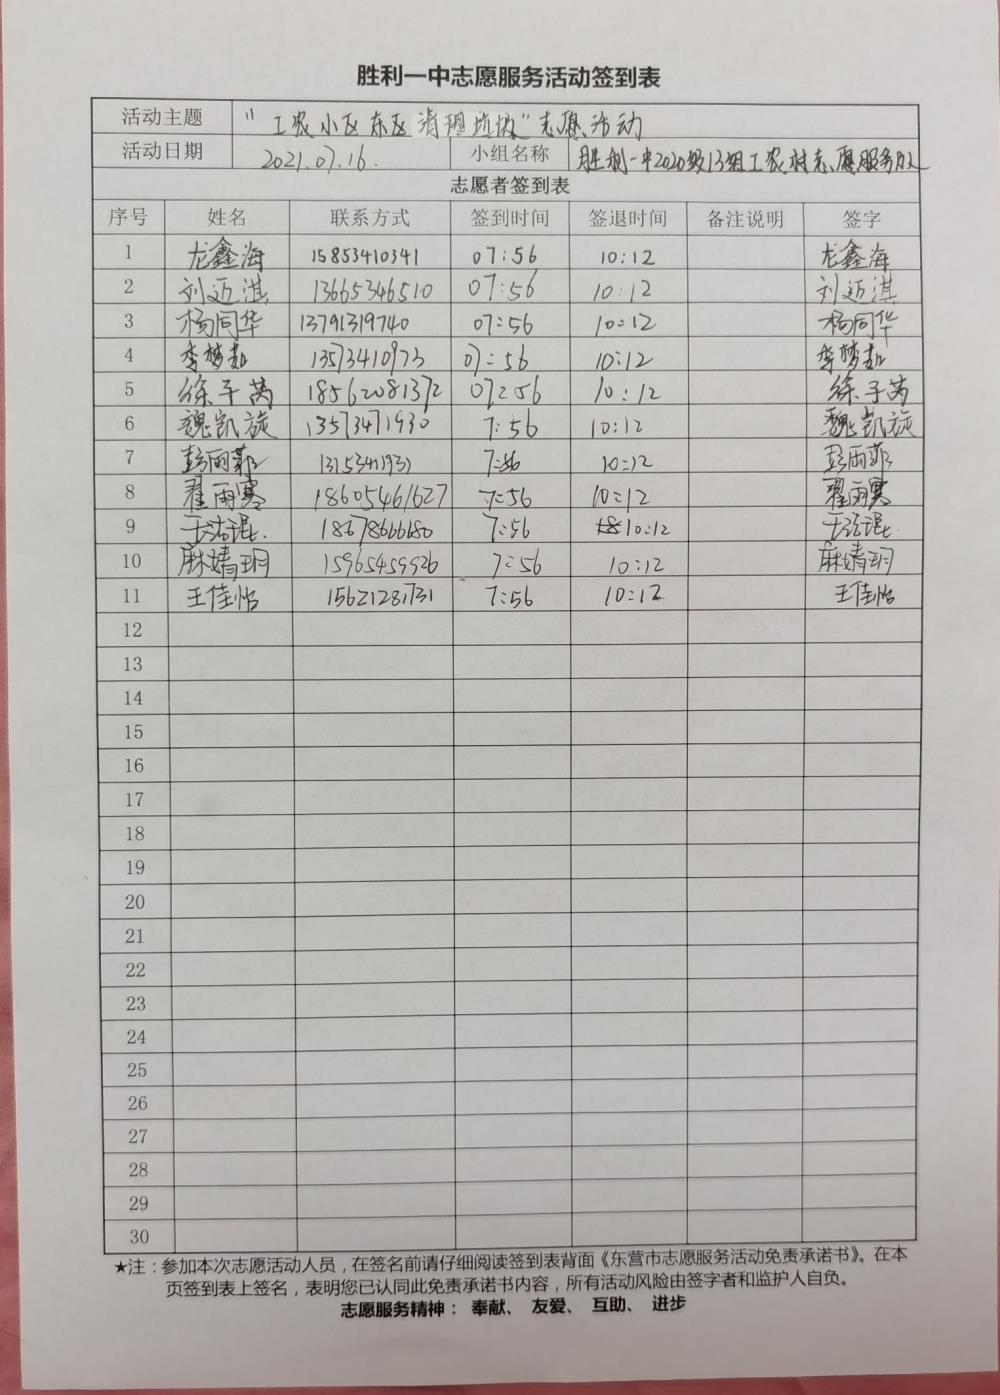 胜利一中志愿服务活动签到表
活动主题 "工农小区东区清理垃圾"志愿活动
活动日期 2021.07.16. 小组名称 胜利一中2020级13组工农村志愿服务队
志愿者签到表
序号 姓名 联系方式 签到时间 签退时间 备注说明 签字
1 龙鑫海 15853410341 07:56 10:12 龙鑫海
2 刘迈淇 13665346510 07:56 10:12 刘迈淇
3 杨同华 13791319740 07:56 10:12 杨同华
4 李梦 13573410973 07:56 10:12 李梦
5 徐子芮 18562081372 07:56 10:12 徐子芮
6 魏凯旋 13573471930 7:56 10:12 魏凯旋
7 彭雨菲 7:56 10:12 彭雨菲
8 翟雨骞 18605461627 7:56 10:12 翟雨骞
9 18678666680 7:56 10:12
10 麻婧玥 15965459926 7:56 10:12 麻婧玥
11 王佳怡 15621281731 7:56 10:12 王佳怡
12
13
14
15
16
17
18
19
20
21
22
23
24
25
26
27
28
29
30
★注：参加本次志愿活动人员，在签名前请仔细阅读签到表背面《东营市志愿服务活动免责承诺书》。在本
页签到表上签名，表明您已认同此免责承诺书内容，所有活动风险由签字者和监护人自负。
志愿服务精神： 奉献、 友爱、 互助、 进步